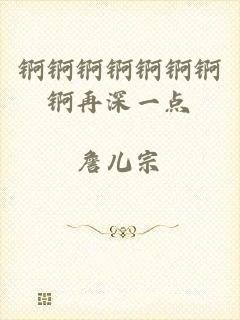 锕锕锕锕锕锕锕
锕再深一点
詹儿宗